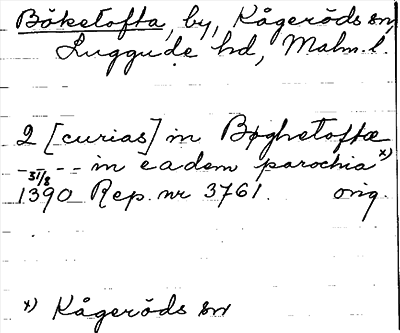 Böketofta, by, Kågeröds sn,
Luggude hd, Malm. l.
2 [curias] in Bøghetoftæ
----- in eadem parochia x)
31/8
1390 Rep. nr 3761. orig.
x) Kågeröds sn